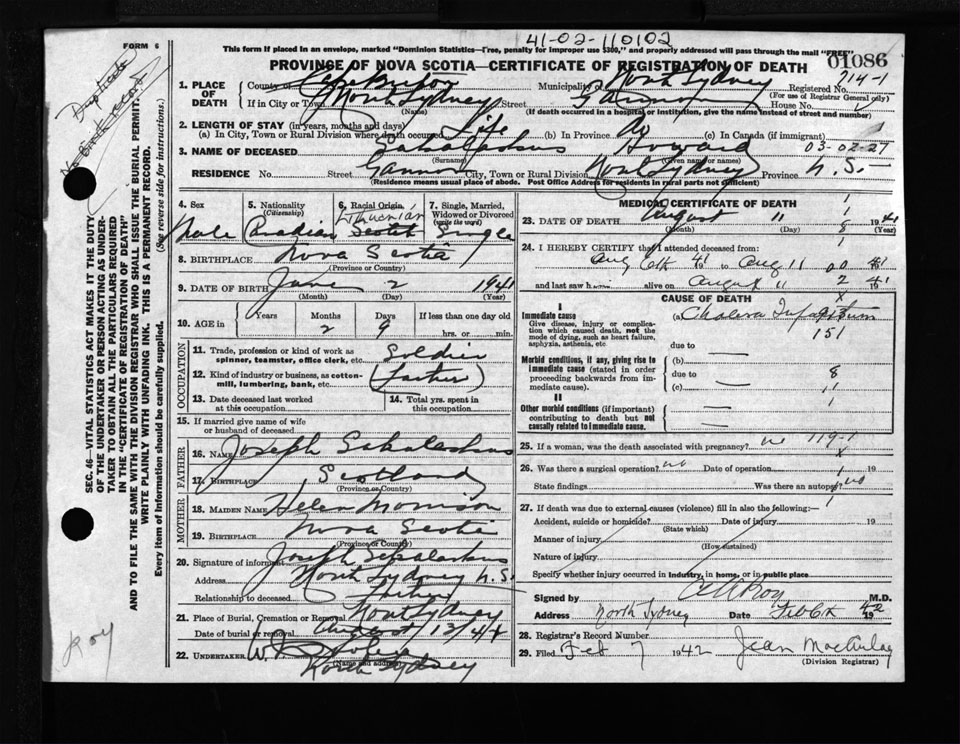 FORM 6
41-02-110102
This form if placed in an envelope, marked "Dominion Statistics—Free, penalty for improper use $300," and properly addressed will pass through the mail "FREE"
01086
PROVINCE OF NOVA SCOTIA—CERTIFICATE OF REGISTRATION OF DEATH
714-1
1. PLACE OF DEATH
County of Cape Breton Municipality of North Sydney Registered No.
(For use of Registrar General only)
If in City or Town North Sydney Street Gannon House No.
(Name) (If death occurred in a hospital or institution, give the name instead of street and number)
2. LENGTH OF STAY (in years, months and days)
(a) In City, Town or Rural Division where death occurred Life (b) In Province do (c) In Canada (if immigrant)
3. NAME OF DECEASED Sakalaskus Howard 03-02-27
(Surname) (Given name or names)
RESIDENCE No. Street Gannon City, Town or Rural Division North Sydney Province N.S.
(Residence means usual place of abode. Post Office Address for residents in rural parts not sufficient)
4. Sex 5. Nationality (Citizenship) 6. Racial Origin 7. Single, Married, Widowed or Divorced (write the word)
Male Canadian Scotch Single
8. BIRTHPLACE Nova Scotia
(Province or Country)
9. DATE OF BIRTH June 2 1941
(Month) (Day) (Year)
10. AGE in Years Months Days If less than one day old
2 9 hrs. or min.
OCCUPATION
11. Trade, profession or kind of work as spinner, teamster, office clerk, etc. Soldier
12. Kind of industry or business, as cotton-mill, lumbering, bank, etc. (father)
13. Date deceased last worked at this occupation 14. Total yrs. spent in this occupation
15. If married give name of wife or husband of deceased
FATHER
16. NAME Joseph Sakalaskus
17. BIRTHPLACE Scotland
(Province or Country)
MOTHER
18. MAIDEN NAME Helen Morrison
19. BIRTHPLACE Nova Scotia
(Province or Country)
20. Signature of informant Joseph Sakalaskus
Address North Sydney N.S.
Relationship to deceased Father
21. Place of Burial, Cremation or Removal North Sydney
Date of burial or removal August 12/41
22. UNDERTAKER
(Name and address)
North Sydney
MEDICAL CERTIFICATE OF DEATH
23. DATE OF DEATH August 11 1941
(Month) (Day) (Year)
24. I HEREBY CERTIFY that I attended deceased from:
Aug 41 to Aug 11 1941
and last saw h alive on August 11 1941
CAUSE OF DEATH
I
Immediate cause
Give disease, injury or complication which caused death, not the mode of dying, such as heart failure, asphyxia, asthenia, etc.
(a) Cholera Infantum
151
due to
Morbid conditions, if any, giving rise to immediate cause (stated in order proceeding backwards from immediate cause).
(b)
due to
(c)
II
Other morbid conditions (if important) contributing to death but not causally related to immediate cause.
25. If a woman, was the death associated with pregnancy? no 119-1
26. Was there a surgical operation? no Date of operation 19
State findings Was there an autopsy? no
27. If death was due to external causes (violence) fill in also the following:—
Accident, suicide or homicide? Date of injury 19
(State which)
Manner of injury
(How sustained)
Nature of injury
Specify whether injury occurred in industry, in home, or in public place
Signed by M.D.
Address North Sydney Date Feb 1942
28. Registrar's Record Number
29. Filed Feb 7 1942 Jean MacAulay
(Division Registrar)
SEC. 46—VITAL STATISTICS ACT MAKES IT THE DUTY OF THE UNDERTAKER OR PERSON ACTING AS UNDERTAKER "TO OBTAIN ALL THE PARTICULARS REQUIRED IN THE "CERTIFICATE OF REGISTRATION OF DEATH" AND TO FILE THE SAME WITH THE DIVISION REGISTRAR WHO SHALL ISSUE THE BURIAL PERMIT.
WRITE PLAINLY WITH UNFADING INK. THIS IS A PERMANENT RECORD.
Every item of Information should be carefully supplied. (See reverse side for instructions.)
Duplicate
No Birth record
Roy